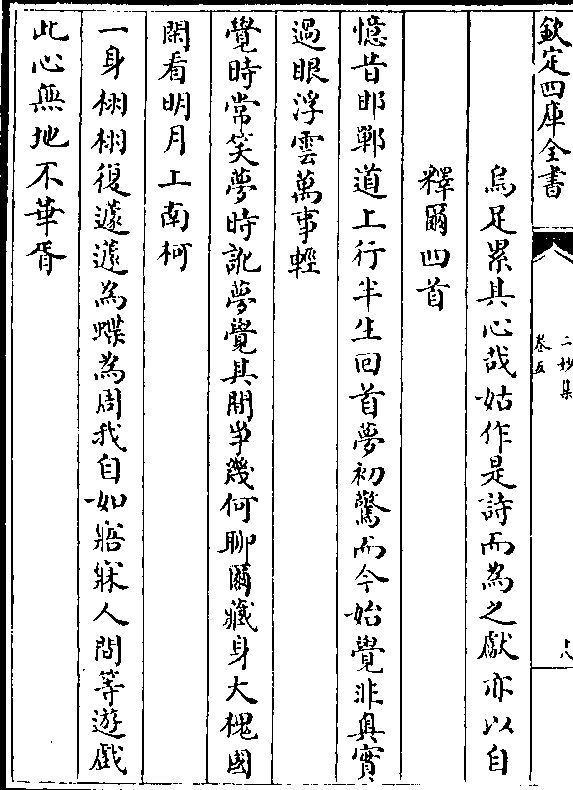 欽定四庫全書
二妙集
卷五
烏足累其心哉姑作是詩而為之獻亦以自
釋爾四首
憶昔邯鄲道上行半生回首夢初驚而今始覺非真實
過眼浮雲萬事輕
覺時常笑夢時訛夢覺其間爭幾何聊爾藏身大槐國
閑看明月上南柯
一身栩栩復蘧蘧為蝶為周我自如寤寐人間等遊戲
此心無地不華胥